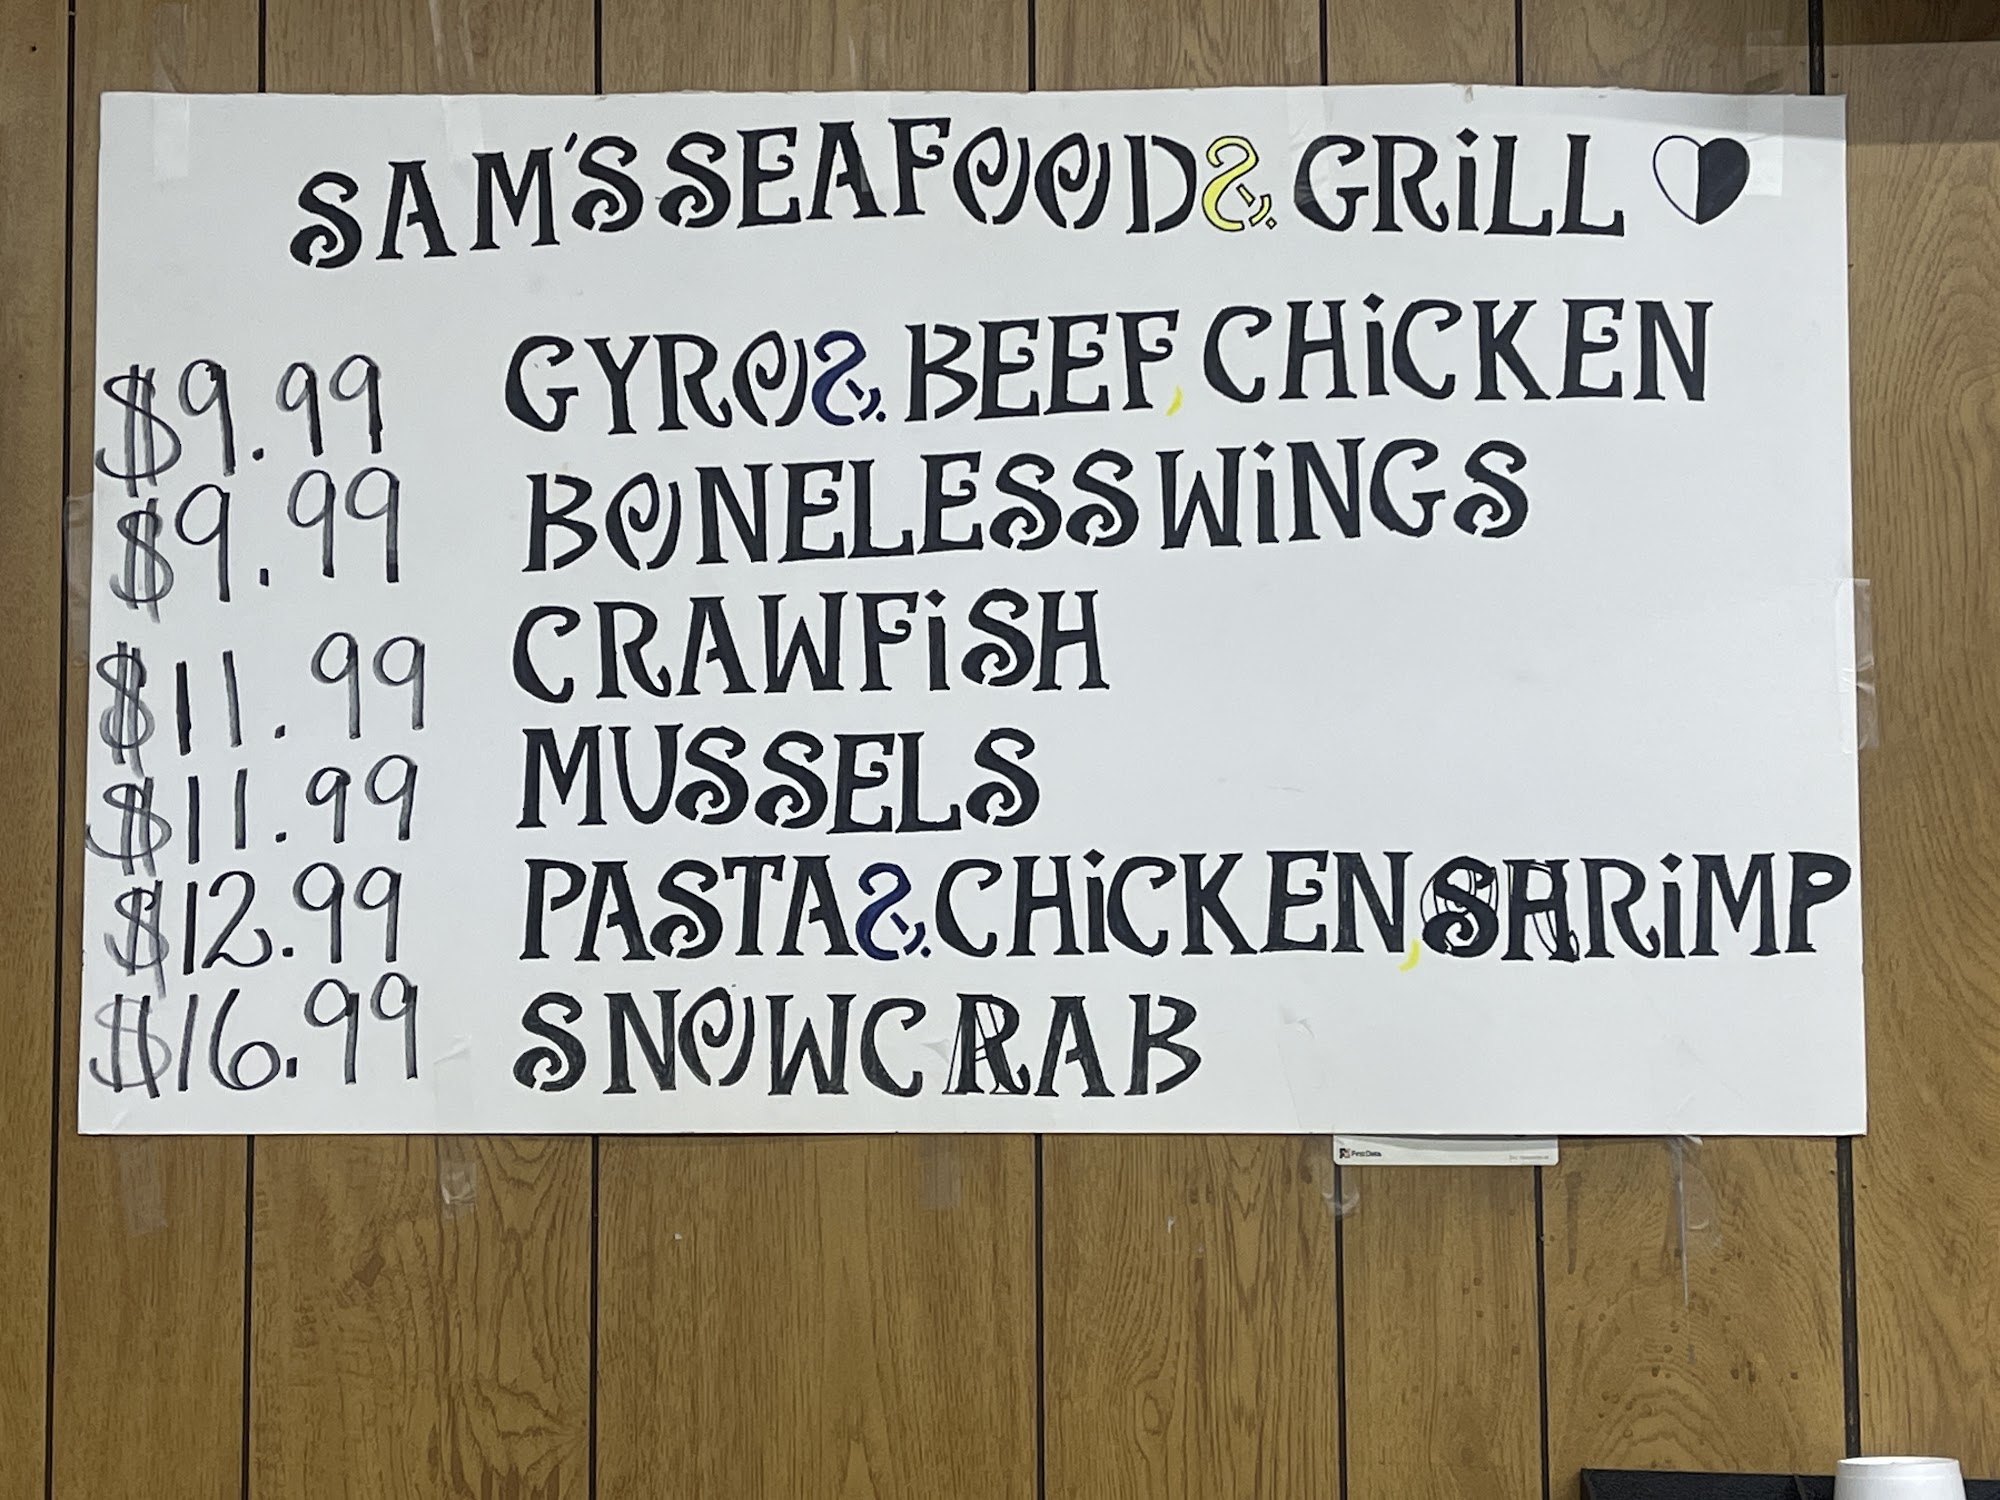 SAM'S SEAFOOD & GRiLL
$9.99 GYRO & BEEF, CHiCKEN
$9.99 BONELESS WiNGS
$11.99 CRAWFiSH
$11.99 MUSSELS
$12.99 PASTA & CHiCKEN, SHRiMP
$16.99 SNOW CRAB
First Data